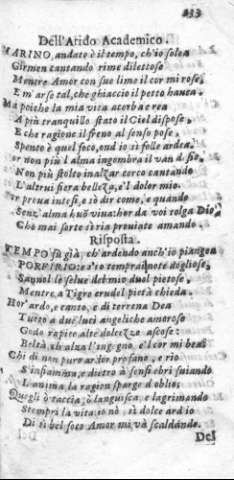 233
Dell'Arido Academico.
MARINO, andate è il tempo, ch'io solea
Girmen cantando rime dilettose
Mentre Amor con sue lime il cor mi rose,
E m'arse tal, che ghiaccio il petto hauea.
Ma poiche la mia vita acerba e rea
A più tranquillo stato il Ciel dispose,
E che ragione il freno al senso pose,
Spento è quel foco, ond'io sì folle ardea.
or non più l'alma ingombra il van disio,
Non più stolto inalzar cerco cantando
L'altrui fiera bellezza, e'l dolor mio.
proua intesi, e sò dir come, e quando
Senz'alma huõ viua: her da voi tolga Dio,
Che mai sorte sì ria prouiate amando.
Risposta.
TEMPO fù già, ch'ardendo anch'io piangea
PORFIRIO: e'n tempra dogliose,
Saynol le selue del mio duol pietose,
Mentre a Tigre crudel pietà chiedea.
Hor'ardo, e canto, e di terrena Dea
Tutto a due luci angeliche amoroso
Godo rapire alte dolcezze ascose:
Beltà, ch'alza l'ingegno, e'l cor mi bea.
Chi di non puro ardor profano, e rio
S'infiamma, e dietro à sensi ebri suiando
L'anima, la ragion sparge d'oblio;
Quegli ò taccia, ò languisca, e lagrimando
Stempri la vita: io nò, sì dolce ardio
Di sì bel foco Amor mi và scaldando.
Del